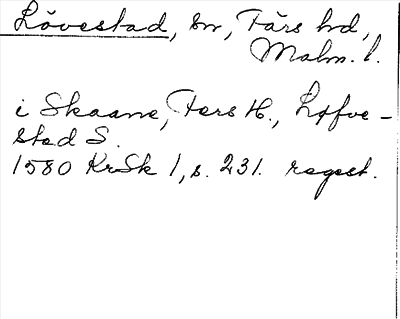 Lövestad, sn, Färs hd,
Malm. l.
i Skaane, Fers H., Løfve-
sted S.
1580 KrSk 1, s. 231. regest.